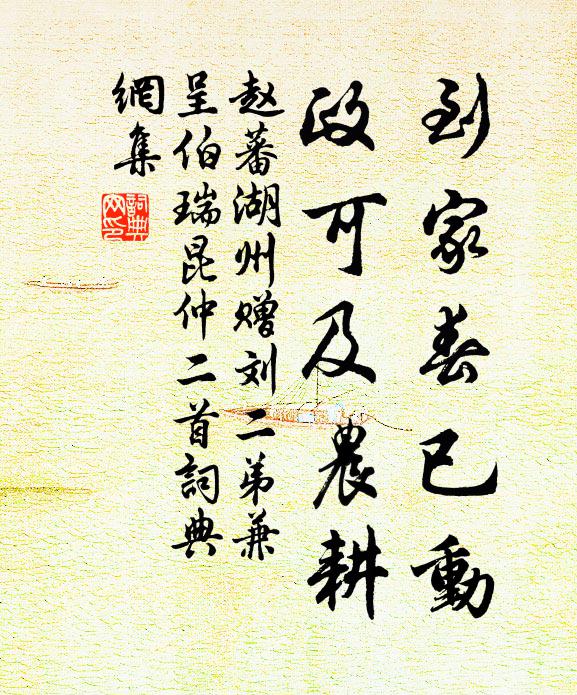 到家春已動
政可及農耕
赵蕃湖州赠刘二弟兼
呈伯瑞昆仲二首詞典
網集
詞典网印